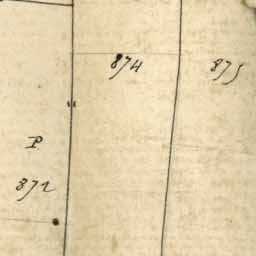 874
875
P
872